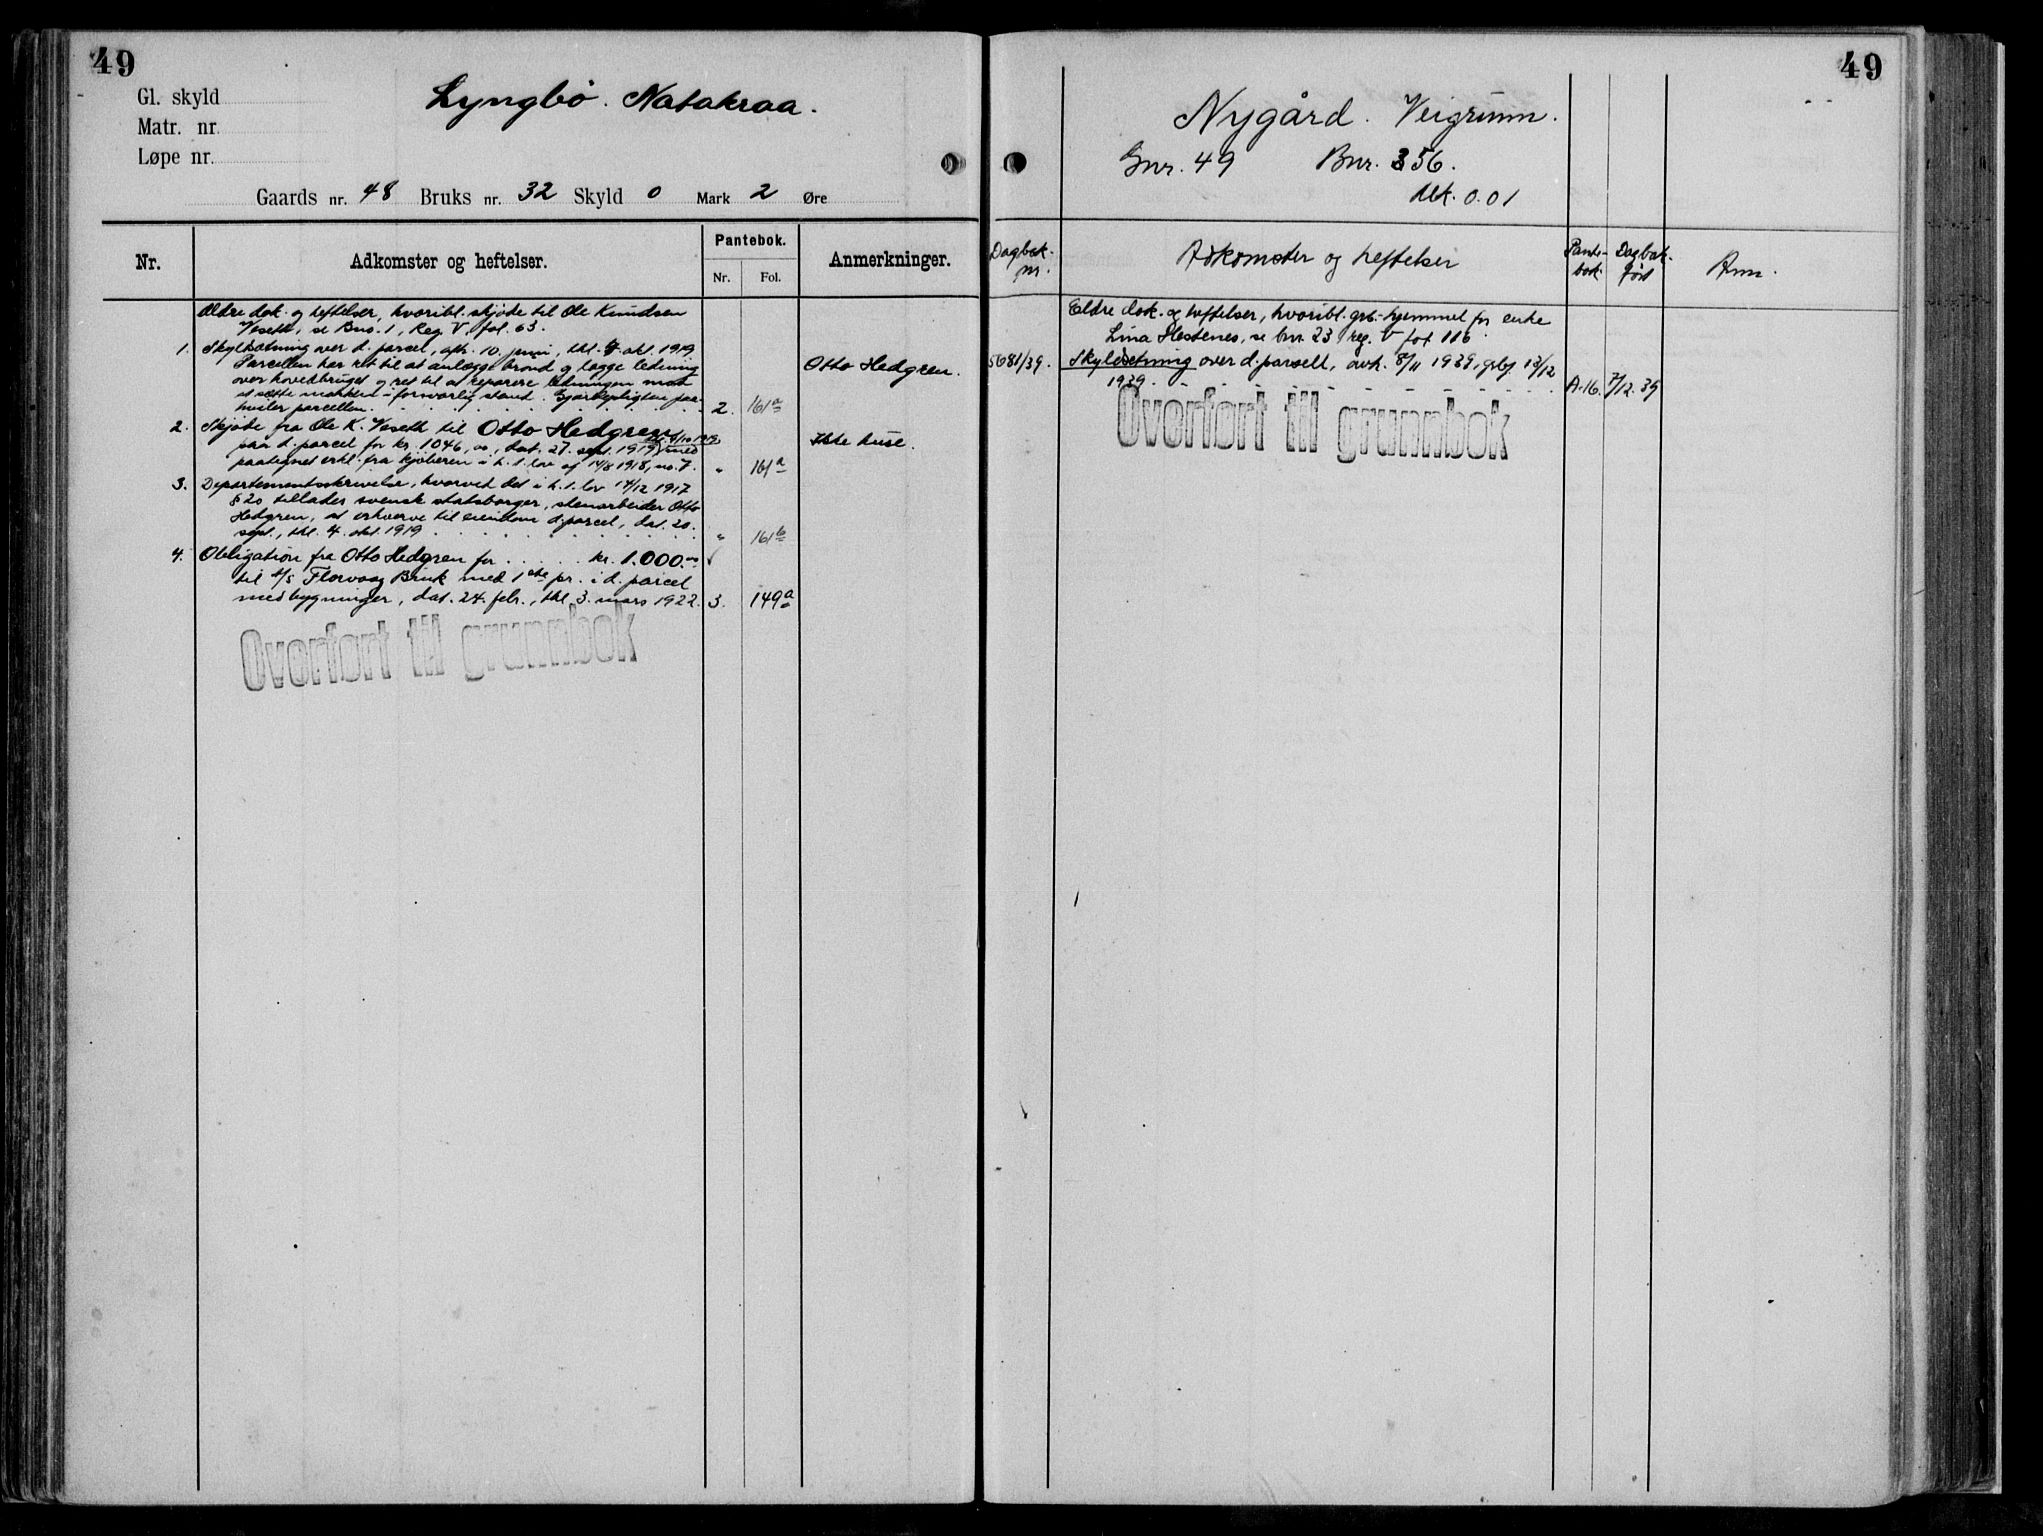 49
Gl. skyld
Matr. nr.
Løpe nr.
Lyngbö. Natakraa.
Gaards nr. 48 Bruks nr. 32 Skyld 0 Mark 2 Øre
Nr.
Adkomster og heftelser.
Pantebok.
Nr.
Fol.
Anmerkninger.
Ældre dok. og heftelser, hvoribl. skjöde til Ole Knudsen
Veseth, se Bno. 1, Reg. V, fol. 63.
1. Skyldsætning over d. parcel, afh. 10. juni, thl. 4. okt. 1919
Parcellen har ret til at anlægge brönd og lægge ledning Otto Hedgren.
over hovedbruget og ret til at reparere ledningen mot
at sætte marken i forsvarlig stand. Gjærdepligten paa-
hviler parcellen. 2. 161a
2. Skjöde fra Ole K. Veseth til Otto Hedgren
paa d. parcel for kr. 1046, oo, dat. 27. sept. 1919, thl. 4/10 1919, med Ikke huse.
paategnet erkl. fra kjöberen i h. t. lov af 14/8 1918, no. 7. " 161a
3. Departementsskrivelse, hvorved det i h. t. lov 14/12 1917
§ 20 tillades svensk statsborger, stenarbeider Otto
Hedgren, at erhverve til eiendom d. parcel, dat. 20.
sept., thl. 4. okt. 1919 " 161b
4. Obligation fra Otto Hedgren for kr. 1.000.oo
til A/S Florvaag Bruk med 1ste pr. i d. parcel
med bygninger, dat. 24. febr., thl. 3. mars 1922. 3. 149a
Overført til grunnbok
49
Nygård. Veigrunn.
Gnr. 49 Bnr. 356.
Mk. 0.01
Dagbok-
nr.
Adkomster og heftelser
Pante-
bok
Dagbok-
ført
Anm.
Eldre dok. og heftelser, hvoribl. grb.-hjemmel for enke
Lina Hestenes, se bnr. 23 reg. V fol 116
5681/39. Skyldsetning over d. parsell, avh. 8/11 1939, grbf. 13/12
1939. A.16. 7/12.39
Overført til grunnbok